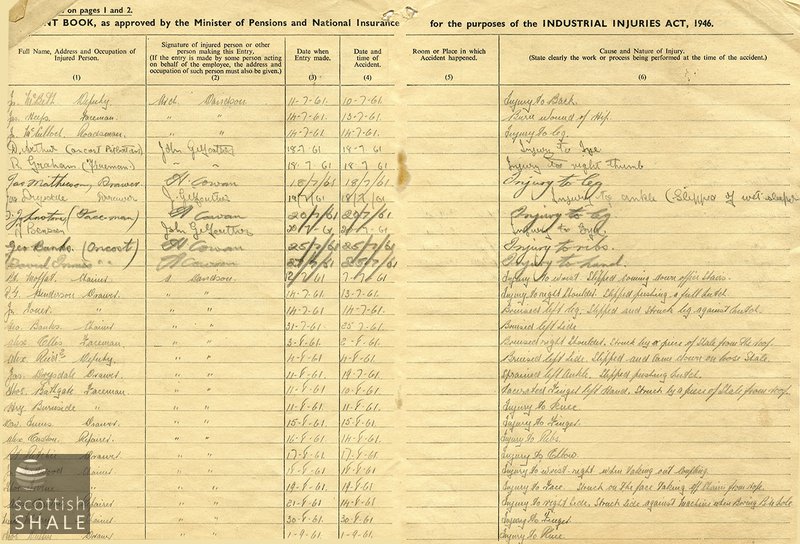 on pages 1 and 2.
NT BOOK, as approved by the Minister of Pensions and National Insurance for the purposes of the INDUSTRIAL INJURIES ACT, 1946.
Full Name, Address and Occupation of Injured Person. (1)
Signature of injured person or other person making this Entry. (If the entry is made by some person acting on behalf of the employee, the address and occupation of such person must also be given.) (2)
Date when Entry made. (3)
Date and time of Accident. (4)
Room or Place in which Accident happened. (5)
Cause and Nature of Injury. (State clearly the work or process being performed at the time of the accident.) (6)
Deputy Davidson 11-7-61. 10-7-61. Injury to Back
Faceman " " 14-7-61. 13-7-61. Burn wound of Hip.
Jn. McCulloch Roadsman. " " 14-7-61. 14-7-61. Injury to leg.
D. Arthur (oncost John Gelfeather 18.7.61 18.7.61 Injury to Eye
R. Graham (Fireman) " " 18.7.61 18.7.61 Injury to right thumb
Mathieson Drawer A Cowan 18/7/61 18/7/61 Injury to leg
Drysdale J. Gelfeather Injury to ankle (Slipped
Johnstone (Faceman) A Cowan 20/7/61 20/7/61 Injury to leg
Benson John Gelfeather Injury to Eye
Geo Banks (Oncost) A Cowan 25/7/61 25/7/61 Injury to ribs.
David Innes " " A Cowan Injury to hand
Moffat Miner Davidson 7-7-61 Injury to wrist. Slipped coming down office stairs
Henderson Drawer " " 14-7-61. 13-7-61. Injury to right shoulder. Slipped pushing a full hutch
Jn. Jones " " " 14-7-61 14-7-61. Bruised left leg. Slipped and struck leg against hutch.
Geo. Banks Miner " " 31-7-61 25-7-61. Bruised left side
Alex. Faceman " " 3-8-61 2-8-61. Bruised right shoulder. Struck by a piece of shale from the roof.
Alex. Reid Deputy " " 4-8-61 4-8-61. Bruised left side. Slipped and came down on loose shale.
Jas. Drysdale Drawer " " 11-8-61 19-7-61 Sprained left ankle. Slipped pushing hutch.
Bathgate Faceman " " 11-8-61 10-8-61. Lacerated finger left hand. Struck by a piece of shale from roof.
Hry. Burnside " " " 11-8-61. 11-8-61. Injury to knee
Dav. Innes Drawer " " 15-8-61. 15-8-61. Injury to finger.
Alex. Repairer " " 16-8-61 14-8-61. Injury to ribs.
Drawer " " 17-8-61 17-8-61 Injury to elbow
Miner " " 18-8-61 18-8-61. Injury to wrist-right when taking out coupling.
" " 19-8-61 19-8-61 Injury to face. Struck on the face taking off chain from
Repairer " " 21-8-61 14-8-61. Injury to right side. Struck side against machine when boring
" " 30-8-61. 30-8-61. Injury to finger.
Drawer " " 1-9-61. 1-9-61. Injury to knee
scottish
SHALE